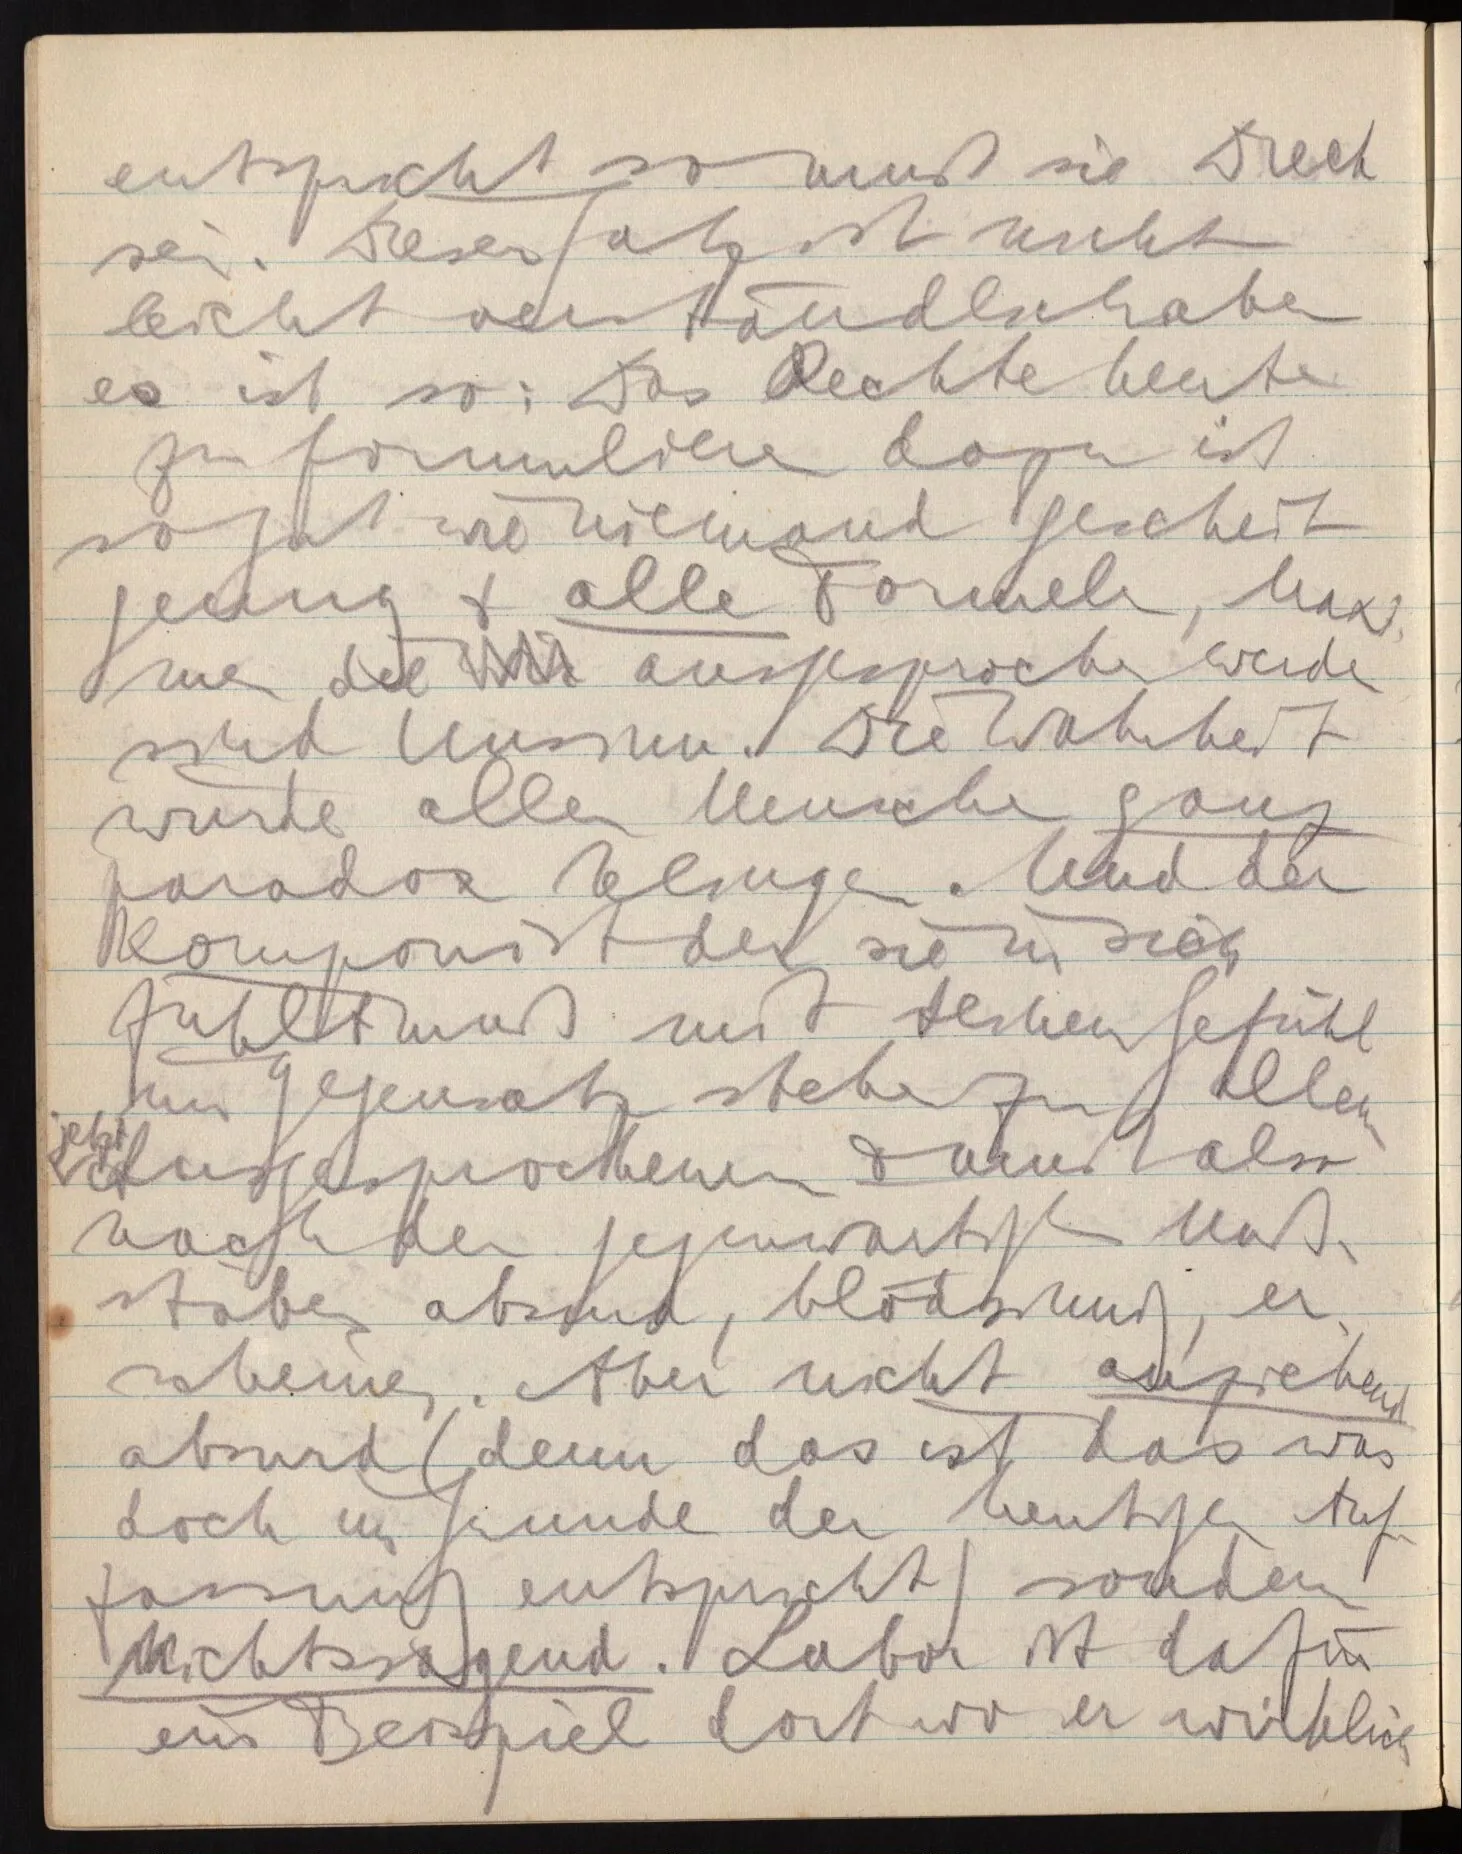 entspricht so muß sie Dreck
sein. Dieser Satz ist nicht
leicht verständlich aber
es ist so: Das Rechte heute
zu formulieren dazu ist
so gut wie niemand gescheit
genug & alle Formeln, Maxi-
men die ausgesprochen werden
sind Unsinn. Die Wahrheit
würde allen Menschen ganz
paradox klingen. Und der
Komponist der sie in sich
fühlt muß mit seinem Gefühl
im Gegensatz stehen zu allem
jetzt Ausgesprochenen & muß also
nach den gegenwärtigen Maß-
stäben absurd, blödsinnig, er-
scheinen. Aber nicht anziehend
absurd (denn das ist das was
doch im Grunde der heutigen Auf-
fassung entspricht) sondern
Nichtssagend. Labor ist dafür
ein Beispiel dort wo er wirklich